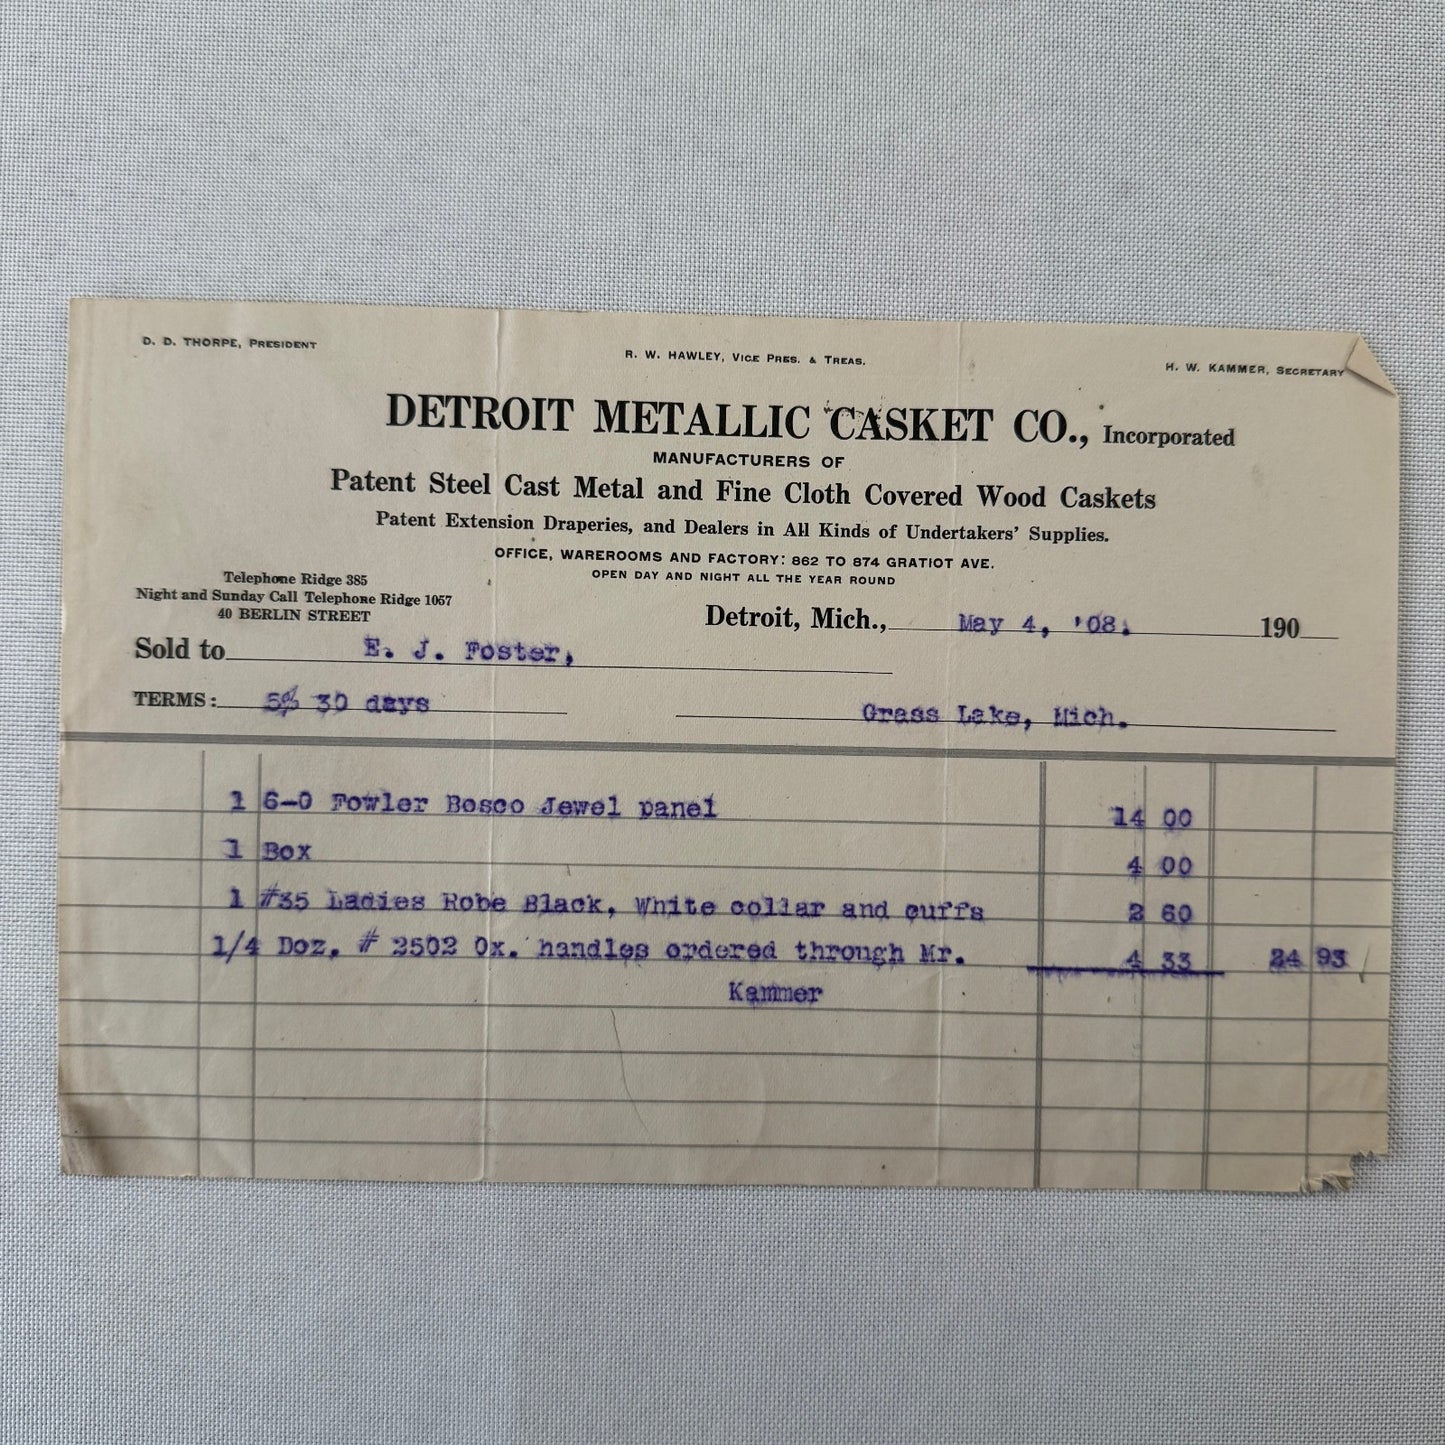 D. D. THORPE, PRESIDENT
R. W. HAWLEY, VICE PRES. & TREAS.
H. W. KAMMER, SECRETARY
DETROIT METALLIC CASKET CO., Incorporated
MANUFACTURERS OF
Patent Steel Cast Metal and Fine Cloth Covered Wood Caskets
Patent Extension Draperies, and Dealers in All Kinds of Undertakers' Supplies.
OFFICE, WAREROOMS AND FACTORY: 862 TO 874 GRATIOT AVE.
OPEN DAY AND NIGHT ALL THE YEAR ROUND
Telephone Ridge 385
Night and Sunday Call Telephone Ridge 1057
40 BERLIN STREET
Detroit, Mich., May 4, '08. 190
Sold to E. J. Foster,
TERMS: 5% 30 days
Grass Lake, Mich.
1 6-0 Fowler Bosco Jewel panel 14 00
1 Box 4 00
1 #35 Ladies Robe Black, White collar and cuffs 2 60
1/4 Doz. # 2502 Ox. handles ordered through Mr. 4 33 24 93
Kammer